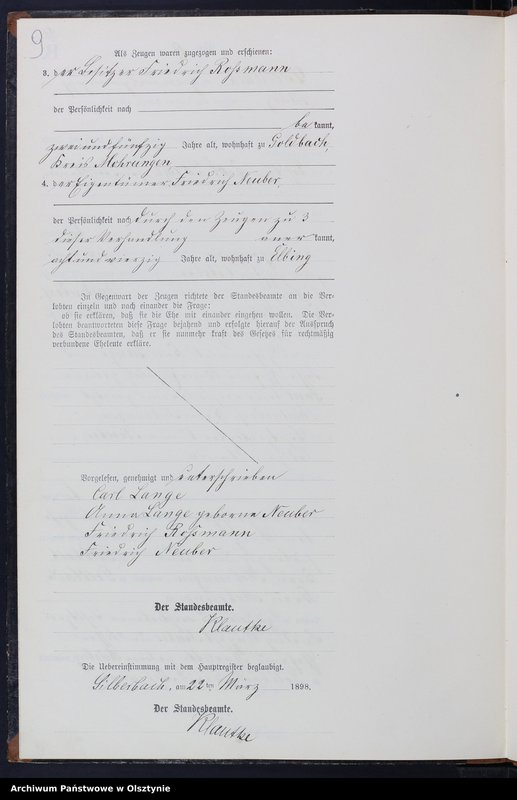 9
Als Zeugen waren zugezogen und erschienen:
3. der Besitzer Friedrich Roßmann
der Persönlichkeit nach
be kannt,
zweiundfünfzig Jahre alt, wohnhaft zu Goldbach,
Kreis Mohrungen
4. der Eigentümer Friedrich Neuber,
der Persönlichkeit nach durch den Zeugen zu 3
dieser Verhandlung aner kannt,
achtundvierzig Jahre alt, wohnhaft zu Elbing
In Gegenwart der Zeugen richtete der Standesbeamte an die Ver-
lobten einzeln und nach einander die Frage:
ob sie erklären, daß sie die Ehe mit einander eingehen wollen. Die Ver-
lobten beantworteten diese Frage bejahend und erfolgte hierauf der Ausspruch
des Standesbeamten, daß er sie nunmehr kraft des Gesetzes für rechtmäßig
verbundene Eheleute erkläre.
Vorgelesen, genehmigt und unterschrieben
Carl Lange
Anna Lange geborne Neuber
Friedrich Roßmann
Friedrich Neuber
Der Standesbeamte.
Klautke
Die Uebereinstimmung mit dem Hauptregister beglaubigt.
Silberbach, am 22ten März 1898.
Der Standesbeamte.
Klautke
Archiwum Państwowe w Olsztynie